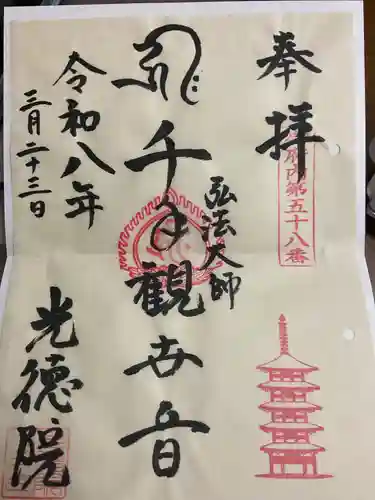 奉拝
御府内第五十八番
弘法大師
千手觀世音
令和八年
三月二十三日
光德院